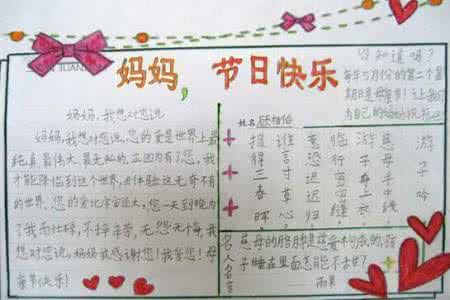 妈妈,节日快乐
妈妈,我想对您说
妈妈,我想对您说,您的爱是世界上最
纯真最伟大、最无私的,正因为有了您,我
才能降临到这个世界,去体验这无奇不有
的世界。您的爱比宇宙还大,您一天到晚为
了我而忙碌,不辞辛苦,无怨无悔,我
想对您说,妈妈我感谢您!我爱您!母
亲节快乐!
你知道吗?
每年5月份的第二个星
期日是母亲节!让我们
为自己的
姓名
游子吟
慈母手中线
游子身上衣
临行密密缝
意恐迟迟归
谁言寸草心
报得三春晖
名人名言
慈母的胳膊是慈爱构成的,孩
子睡在里面怎能不甜?
——雨果